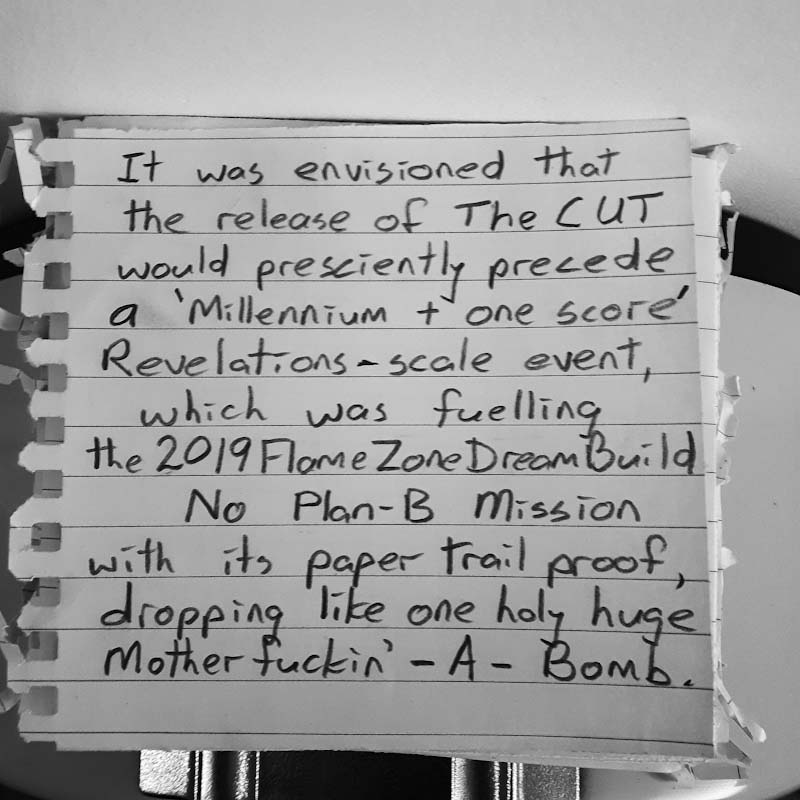 It was envisioned that
the release of The CUT
would presciently precede
a 'Millennium + one score'
Revelations-scale event,
which was fuelling
the 2019 FlameZoneDreamBuild
No Plan-B Mission
with its paper trail proof,
dropping like one holy huge
Motherfuckin' - A - Bomb.